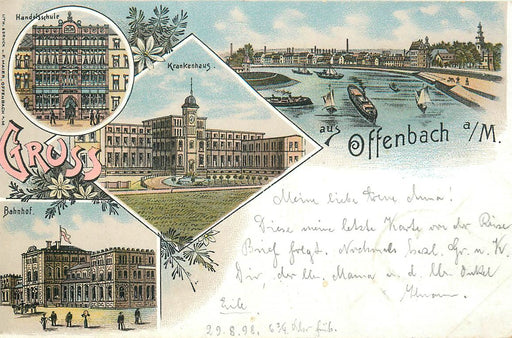 Handelsschule.
Krankenhaus.
Gruss
aus
Offenbach a/M.
Bahnhof.
Meine liebe Anna!
Diese meine letzte Karte vor der Reise
Brief folgt. Nochmals herzl. Gr. u. K.
Dir, der lb. Mama u. d. lb. Onkel
Eile
29.8.98. 6¾ Uhr früh.